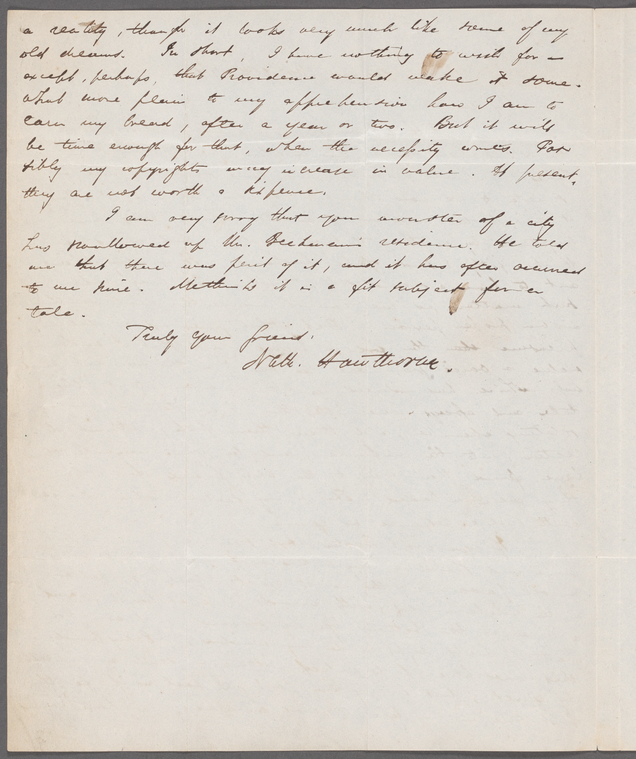 a reality, though it looks very much like some of my
old dreams. In short, I have nothing to wish for —
except, perhaps, that Providence would make it some-
what more plain to my apprehension how I am to
earn my bread, after a year or two. But it will
be time enough for that, when the necessity comes. Pos
sibly my copyrights may increase in value. At present,
they are not worth a sixpence.
I am very sorry that your monster of a city
has swallowed up Mr. Beekman's residence. He told
me that there was peril of it, and it has often occurred
to me since. Methinks it is a fit subject for a
tale.
Truly your friend.
Nath. Hawthorne.